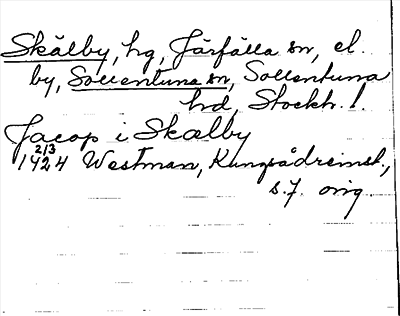 Skälby, hg, Järfälla sn, el.
by, Sollentuna sn, Sollentuna
hd, Stockh. l.
Jacop i Skælby
1424 2/3 Westman, Kungsådreinst.,
s. 7. orig.